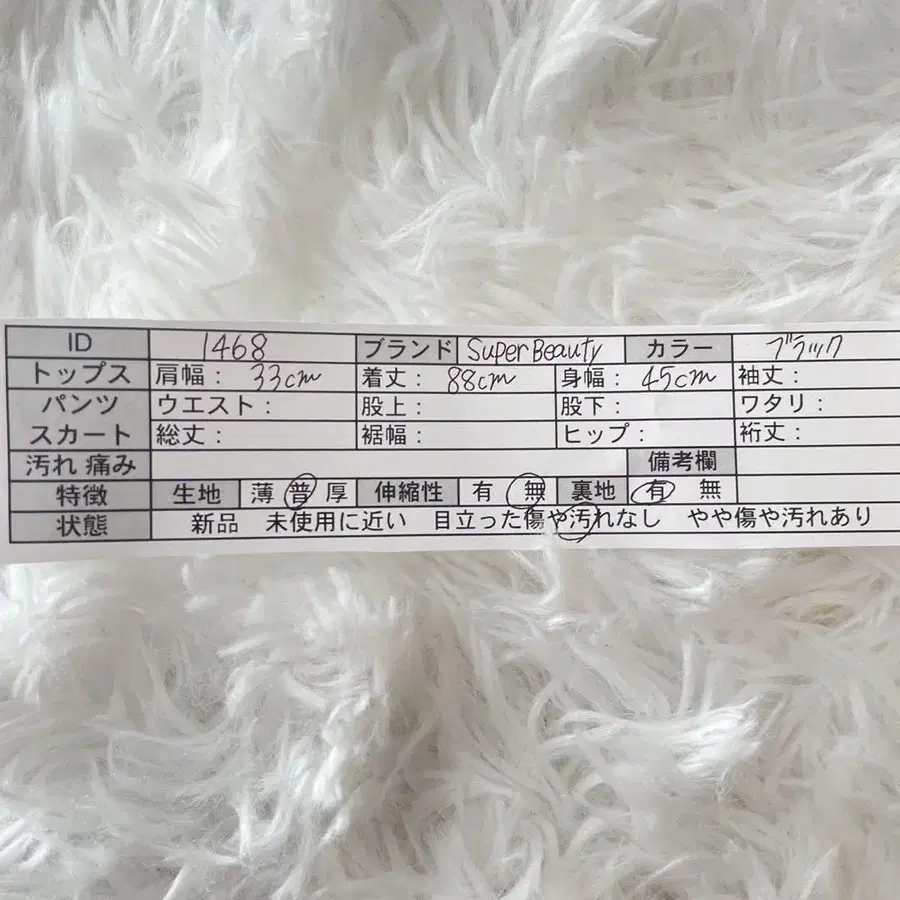 ID 1468 ブランド Super Beauty カラー ブラック
トップス 肩幅： 33cm 着丈： 88cm 身幅： 45cm 袖丈：
パンツ ウエスト： 股上： 股下： ワタリ：
スカート 総丈： 裾幅： ヒップ： 裄丈：
汚れ 痛み 備考欄
特徴 生地 薄 普 厚 伸縮性 有 無 裏地 有 無
状態 新品 未使用に近い 目立った傷や汚れなし やや傷や汚れあり